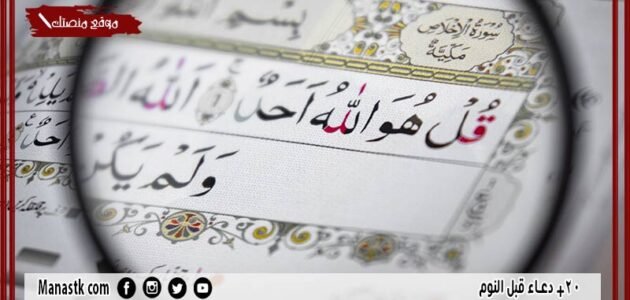 موقع منصتك
سُورَةُ الْإِخْلَاصِ
مَكِّيَّةٌ
بِسْمِ اللهِ
قُلْ هُوَ اللهُ اَحَدٌ ١ اَللهُ
وَلَمْ يَكُنْ
Manastk com
+٢٠ دعاء قبل النوم